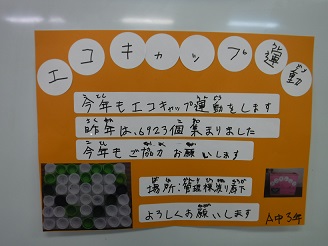 エコキャップ運動
今年もエコキャップ運動をします
昨年は、6923個集まりました
今年もご協力お願いします
場所:管理棟渡り廊下
よろしくお願いします
A中3年